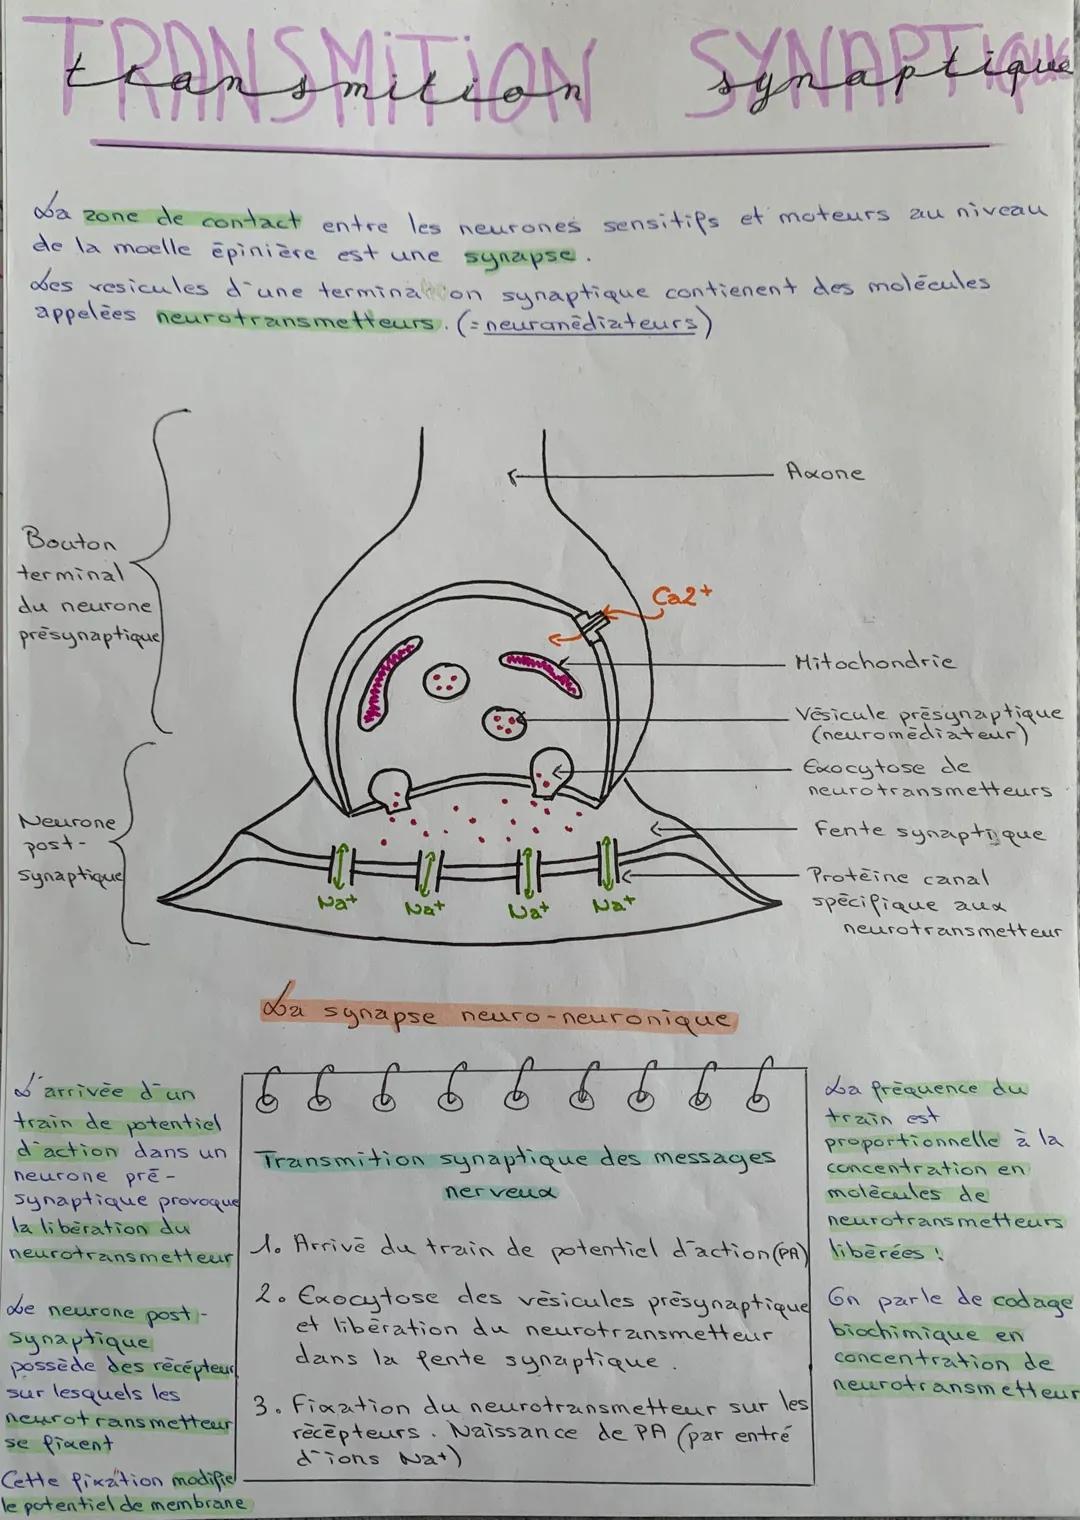 TRANSMITION SYNAPTIQUE
transmition synaptique
La zone de contact entre les neurones sensitifs et moteurs au niveau
de la moelle épinière est une synapse.
Les vesicules d'une termination synaptique contienent des molécules
appelées neurotransmetteurs. (=neuromédiateurs)
Axone
Bouton
terminal
du neurone
présynaptique
Ca2+
Mitochondrie
Vésicule présynaptique
(neuromédiateur)
Exocytose de
neurotransmetteurs
Neurone
post-
synaptique
Fente synaptique
Protéine canal
spécifique aux
neurotransmetteur
Na+ Na+ Na+ Na+
La synapse neuro-neuronique
L'arrivée d'un
train de potentiel
d'action dans un
neurone pré-
synaptique provoque
la libération du
neurotransmetteur
Le neurone post-
synaptique
possède des récépteur
sur lesquels les
neurotransmetteur
se fixent
Cette fixation modifie
le potentiel de membrane
Transmition synaptique des messages
nerveux
1. Arrivé du train de potentiel d'action (PA)
2. Exocytose des vésicules présynaptique
et libération du neurotransmetteur
dans la fente synaptique.
3. Fixation du neurotransmetteur sur les
récépteurs. Naissance de PA (par entré
d'ions Na+)
La fréquence du
train est
proportionnelle à la
concentration en
molécules de
neurotransmetteurs
libérées !
On parle de codage
biochimique en
concentration de
neurotransmetteur